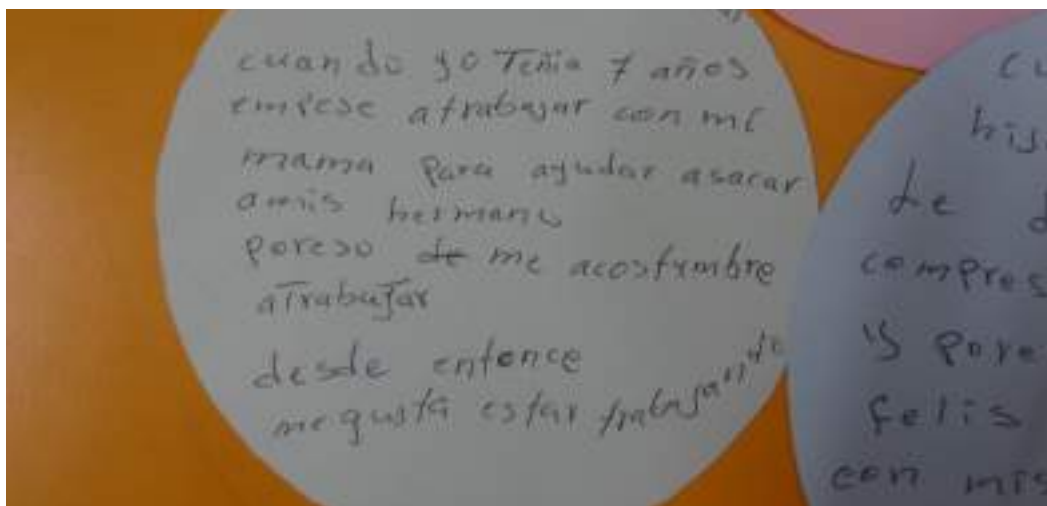 cuando yo Tenia 7 años
empese atrabajar con mi
mama para ayudar asacar
amis hermano
poreso de me acostumbre
aTrabajar
desde entonce
megusta estar trabajando
his
de d
compres
felis
con mis